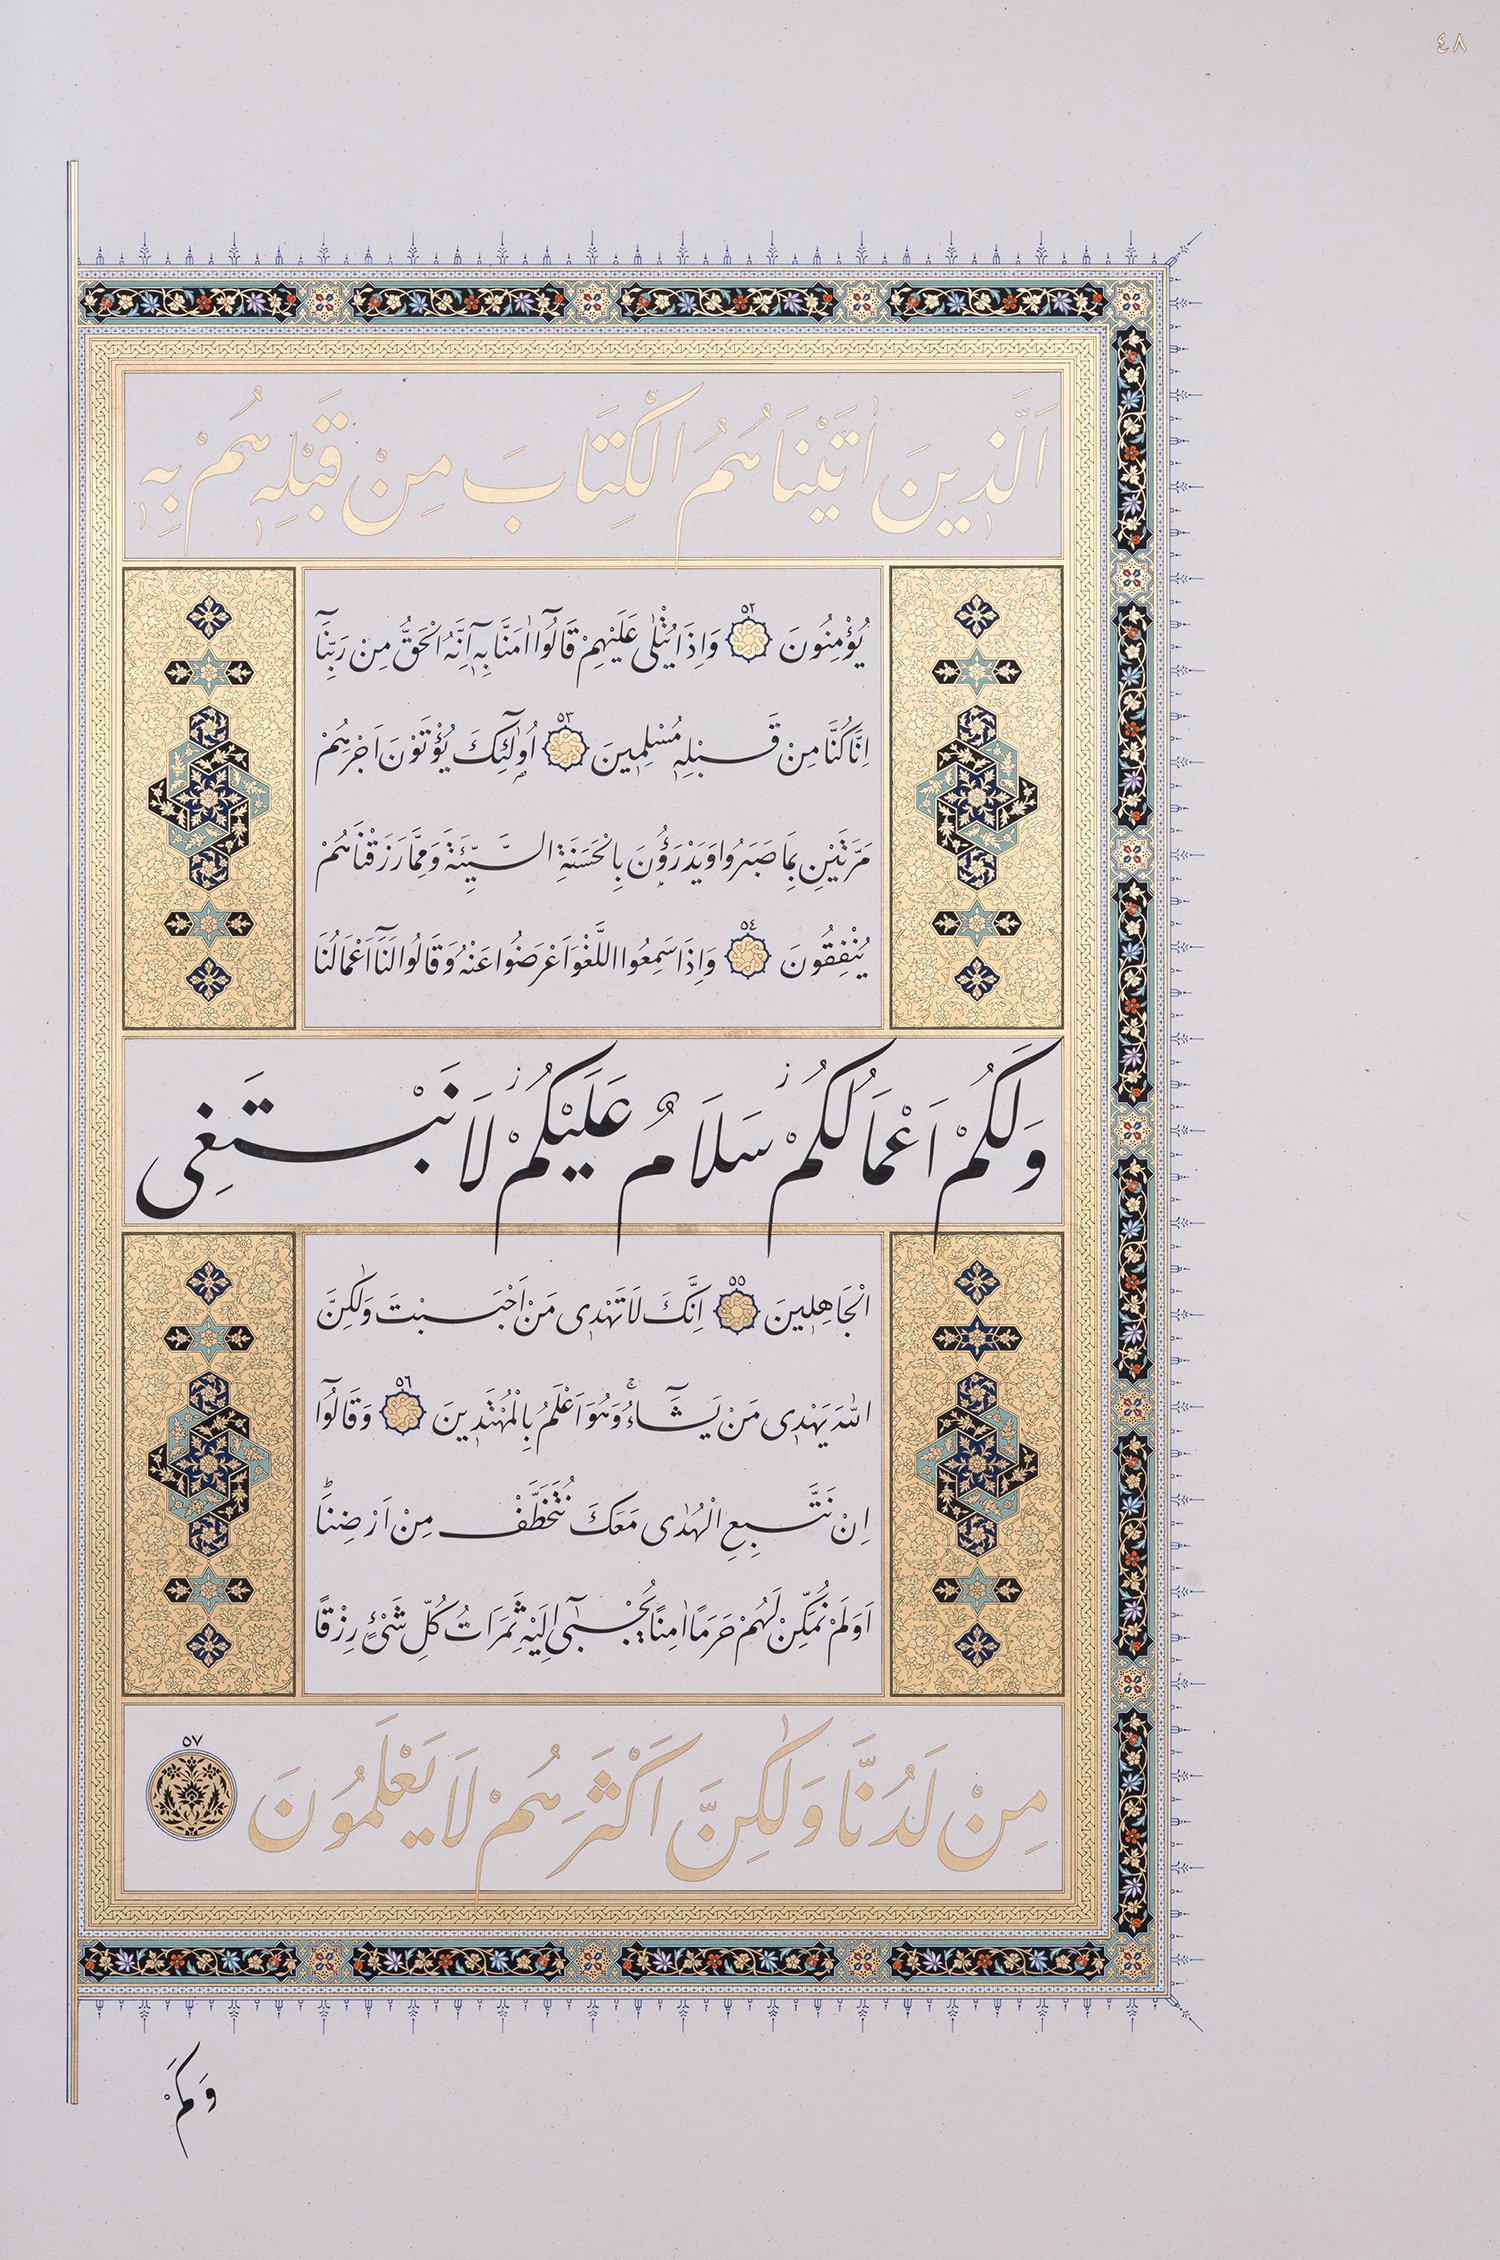 ٤٨
اَلَّذِينَ اٰتَيْنَاهُمُ الْكِتَابَ مِنْ قَبْلِهِ هُمْ بِهِ
يُؤْمِنُونَ ٥٢ وَاِذَا يُتْلٰى عَلَيْهِمْ قَالُٓوا اٰمَنَّا بِهِٓ اِنَّهُ الْحَقُّ مِنْ رَبِّنَٓا
اِنَّا كُنَّا مِنْ قَبْلِهِ مُسْلِمِينَ ٥٣ اُو۬لٰٓئِكَ يُؤْتَوْنَ اَجْرَهُمْ
مَرَّتَيْنِ بِمَا صَبَرُوا وَيَدْرَؤُ۫نَ بِالْحَسَنَةِ السَّيِّئَةَ وَمِمَّا رَزَقْنَاهُمْ
يُنْفِقُونَ ٥٤ وَاِذَا سَمِعُوا اللَّغْوَ اَعْرَضُوا عَنْهُ وَقَالُوا لَنَٓا اَعْمَالُنَا
وَلَكُمْ اَعْمَالُكُمْۘ سَلَامٌ عَلَيْكُمْۘ لَا نَبْتَغِى
الْجَاهِلِينَ ٥٥ اِنَّكَ لَا تَهْدِى مَنْ اَحْبَبْتَ وَلٰكِنَّ
اللّٰهَ يَهْدِى مَنْ يَشَٓاءُۚ وَهُوَ اَعْلَمُ بِالْمُهْتَدِينَ ٥٦ وَقَالُٓوا
اِنْ نَتَّبِعِ الْهُدٰى مَعَكَ نُتَخَطَّفْ مِنْ اَرْضِنَاۜ
اَوَلَمْ نُمَكِّنْ لَهُمْ حَرَمًا اٰمِنًا يُجْبٰٓى اِلَيْهِ ثَمَرَاتُ كُلِّ شَىْءٍ رِزْقًا
مِنْ لَدُنَّا وَلٰكِنَّ اَكْثَرَهُمْ لَا يَعْلَمُونَ ٥٧
وَكَمْ